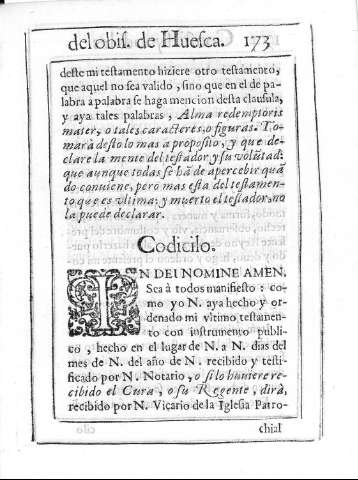 del obis. de Huesca. 173
deste mi testamento hiziere otro testamento,
que aquel no sea valido, sino que en el de pa-
labra a palabra se haga mencion desta clausula,
y aya tales palabras, Alma redemptoris
mater, o tales caracteres, o figuras. To-
marà desto lo mas a proposito, y que de-
clare la mente del testador y su volũtad:
que aunque todas se hã de apercebir quã
do conuiene, pero mas esta del testamen-
to que es vltima: y muerto el testador, no
la puede declarar.
Codicilo.
IN DEI NOMINE AMEN.
Sea à todos manifiesto: co-
mo yo N. aya hecho y or-
denado mi vltimo testamen-
to con instrumento publi-
co, hecho en el lugar de N. a N. dias del
mes de N. del año de N. recibido y testi-
ficado por N. Notario, o si lo huuiere re-
cibido el Cura, o su Regente, dirà,
recibido por N. Vicario de la Iglesia Parro-
chial